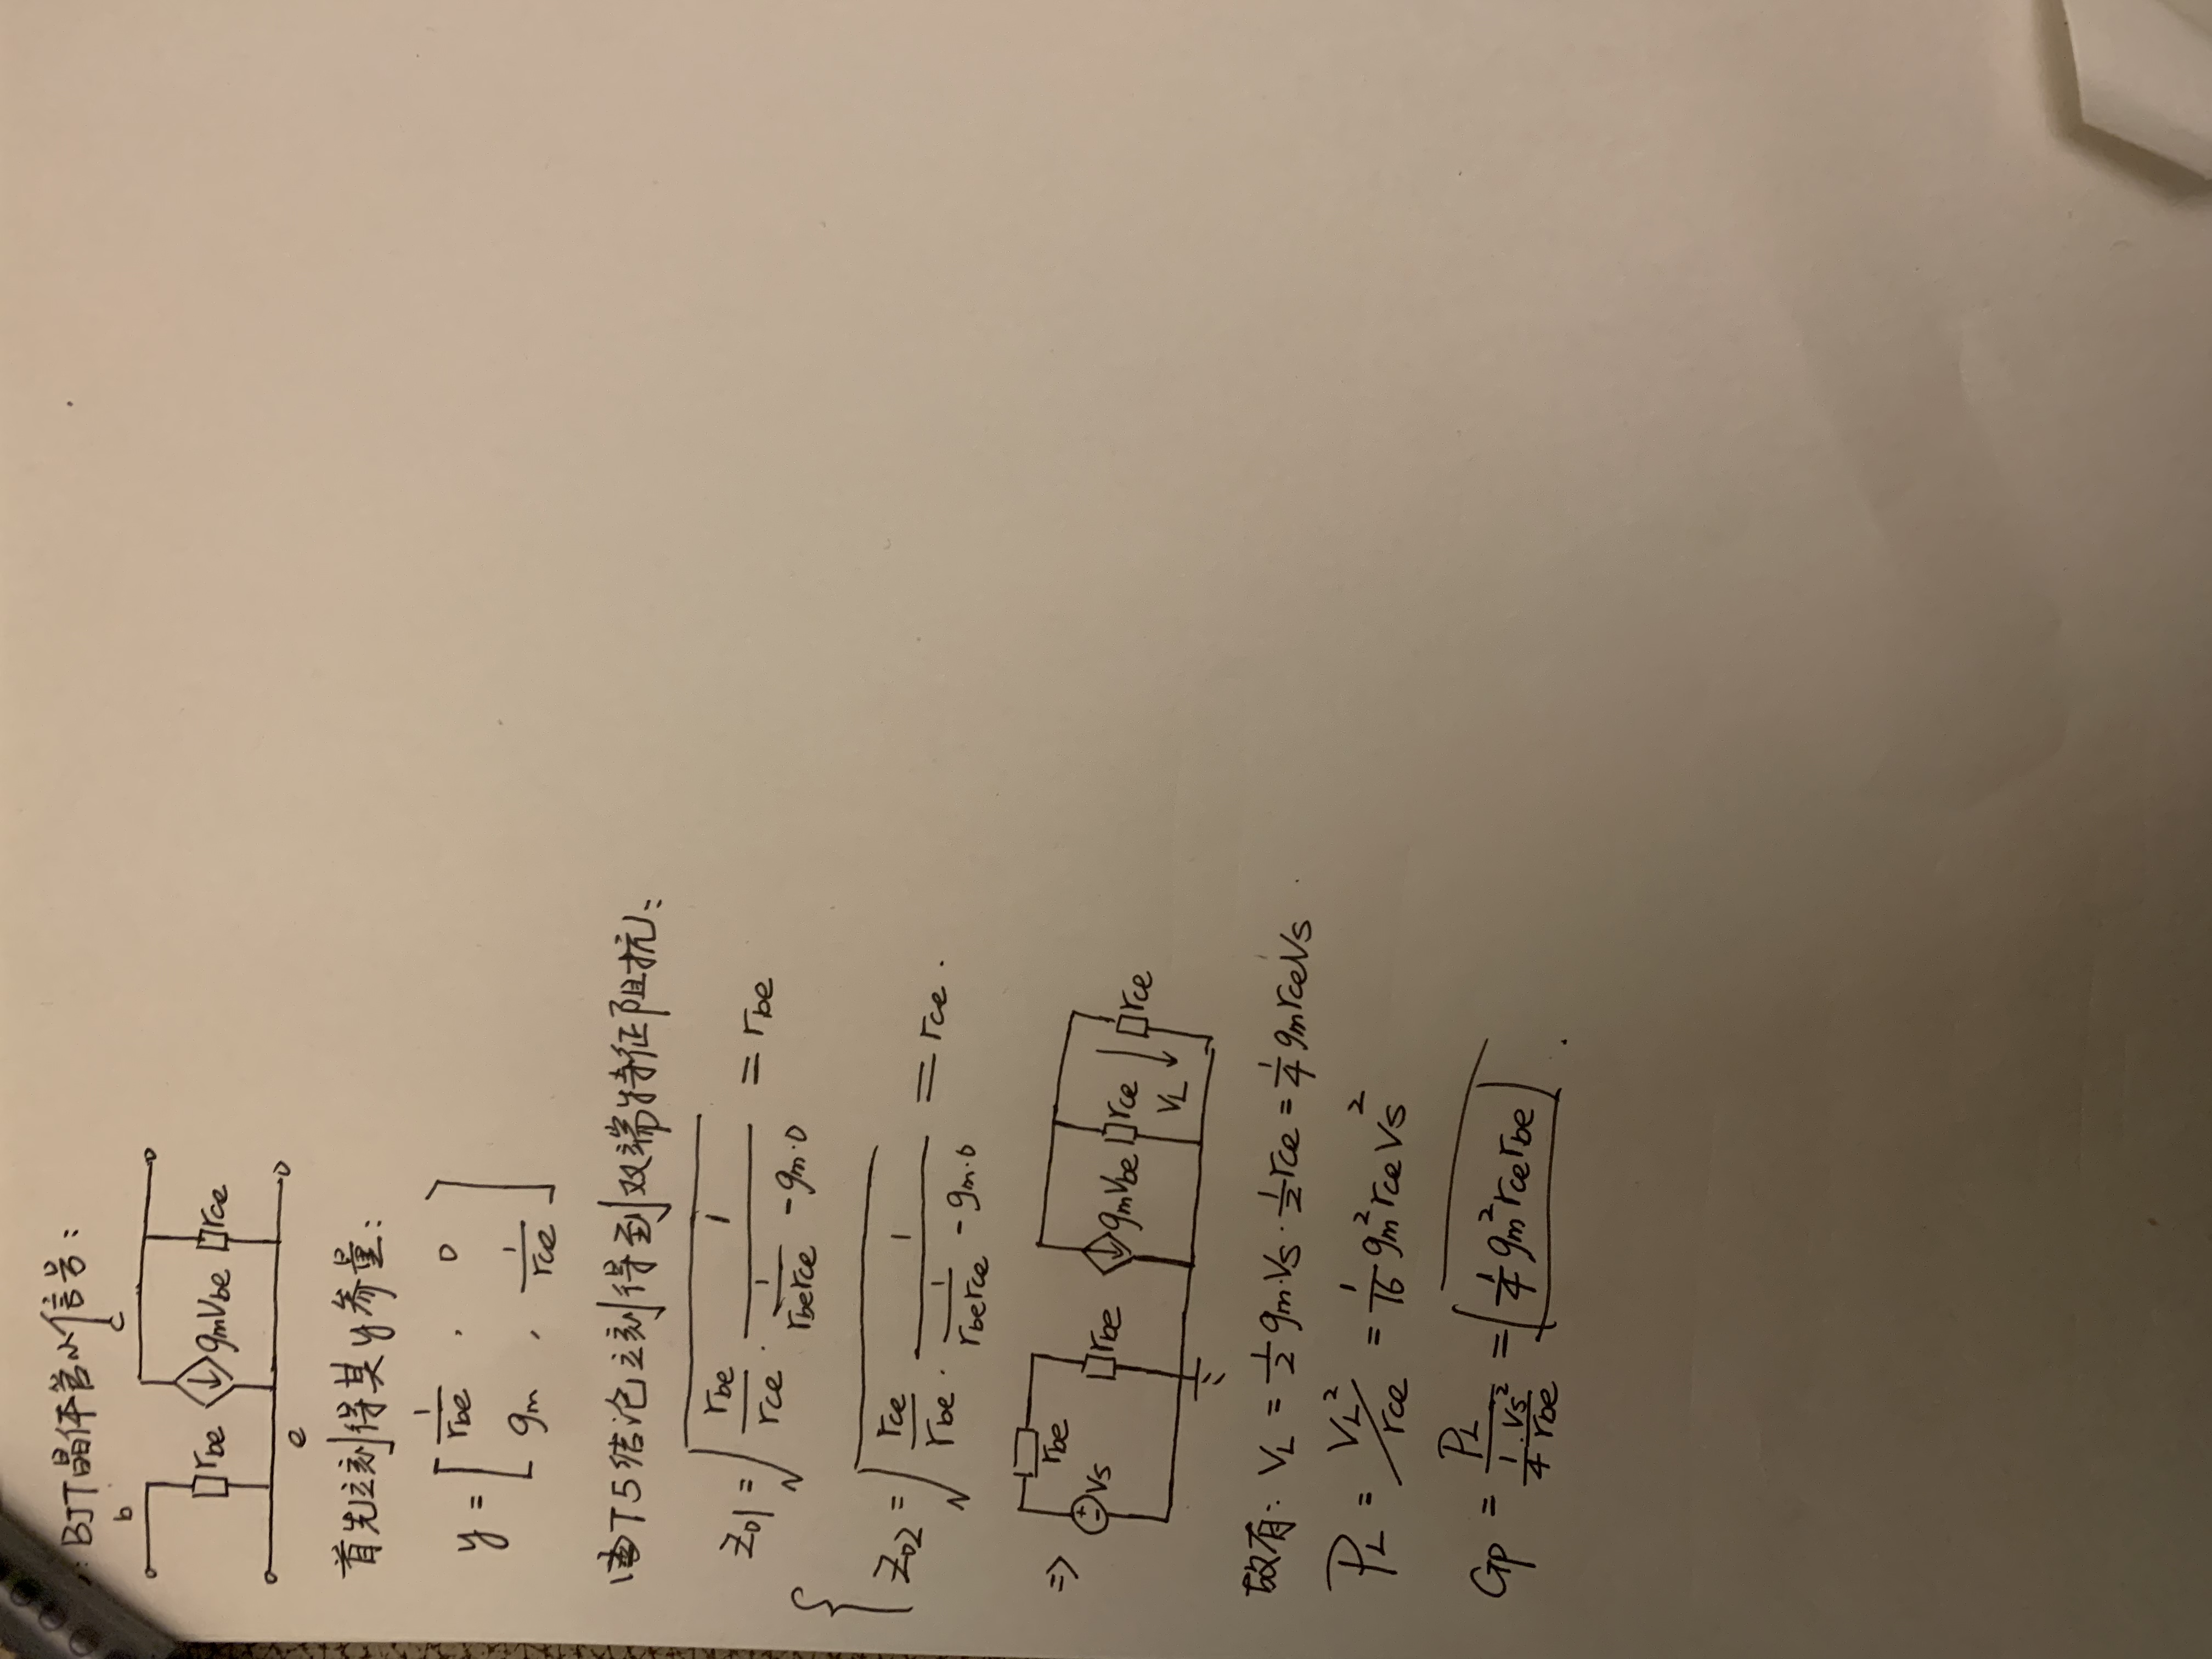 : BJT晶体管小信号:
b c
rbe gmVbe rce
e
首先立刻得其y参量:
y = [ 1/rbe , 0
gm , 1/rce ]
由T5结论立刻得到双端特征阻抗:
Z01 = √( rbe/rce · 1/(1/(rberce) - gm·0) ) = rbe
{
Z02 = √( rce/rbe · 1/(1/(rberce) - gm·0) ) = rce.
⇒ rbe
+ - Vs rbe gmVbe rce VL rce
故有: VL = 1/2 gm·Vs · 1/2 rce = 1/4 gmrceVs
PL = VL²/rce = 1/16 gm²rceVs²
Gp = PL/(1/4·Vs²/rbe) = 1/4 gm²rcerbe .